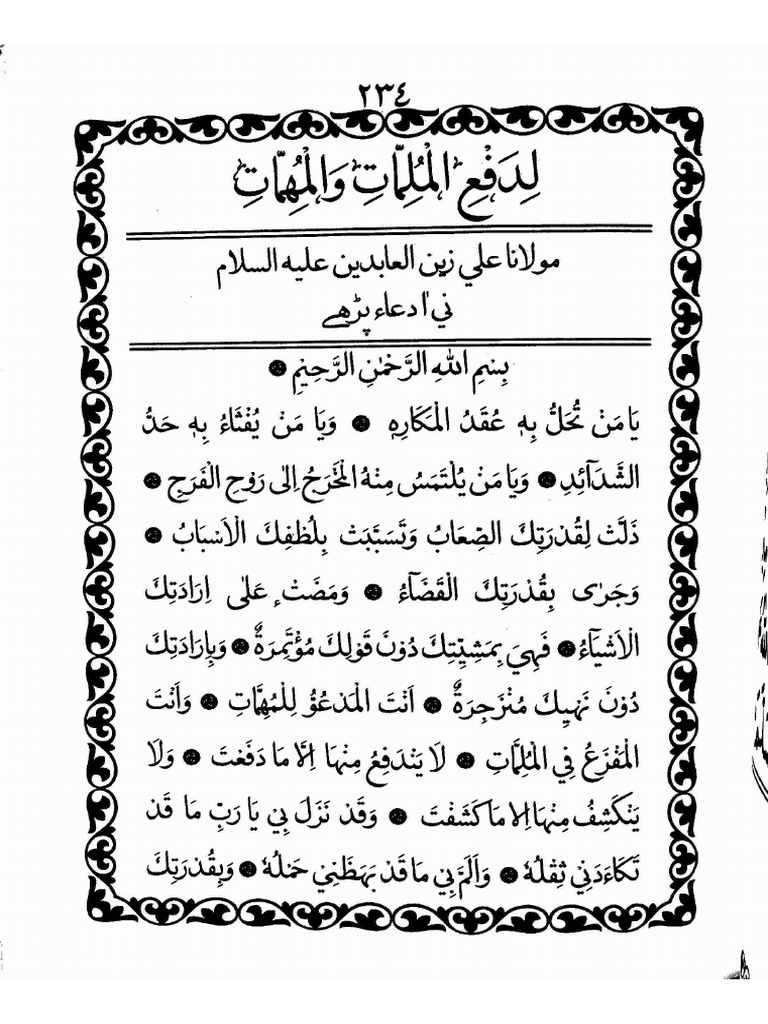 ٢٣٤
لِدَفْعِ الْمُلِمَّاتِ وَالْمُهِمَّاتِ
مولانا علي زين العابدين عليه السلام
ني ا دعاء پڑهے
بِسْمِ اللهِ الرَّحْمٰنِ الرَّحِيْمِ ●
يَا مَنْ تُحَلُّ بِهٖ عُقَدُ الْمَكَارِهِ ● وَيَا مَنْ يُفْثَاءُ بِهٖ حَدُّ
الشَّدَآئِدِ ● وَيَا مَنْ يُلْتَمَسُ مِنْهُ الْمَخْرَجُ اِلٰى رَوْحِ الْفَرَجِ ●
ذَلَّتْ لِقُدْرَتِكَ الصِّعَابُ وَتَسَبَّبَتْ بِلُطْفِكَ الْاَسْبَابُ ●
وَجَرٰى بِقُدْرَتِكَ الْقَضَآءُ ● وَمَضَتْ عَلٰى اِرَادَتِكَ
الْاَشْيَآءُ ● فَهِيَ بِمَشِيَّتِكَ دُوْنَ قَوْلِكَ مُؤْتَمِرَةٌ ● وَبِاِرَادَتِكَ
دُوْنَ نَهْيِكَ مُنْزَجِرَةٌ ● اَنْتَ الْمَدْعُوُّ لِلْمُهِمَّاتِ ● وَاَنْتَ
الْمَفْزَعُ فِي الْمُلِمَّاتِ ● لَا يَنْدَفِعُ مِنْهَا اِلَّا مَا دَفَعْتَ ● وَلَا
يَنْكَشِفُ مِنْهَا اِلَّا مَا كَشَفْتَ ● وَقَدْ نَزَلَ بِيْ يَا رَبِّ مَا قَدْ
تَكَاءَدَنِيْ ثِقْلُهٗ ● وَاَلَمَّ بِيْ مَا قَدْ بَهَظَنِيْ حَمْلُهٗ ● وَبِقُدْرَتِكَ